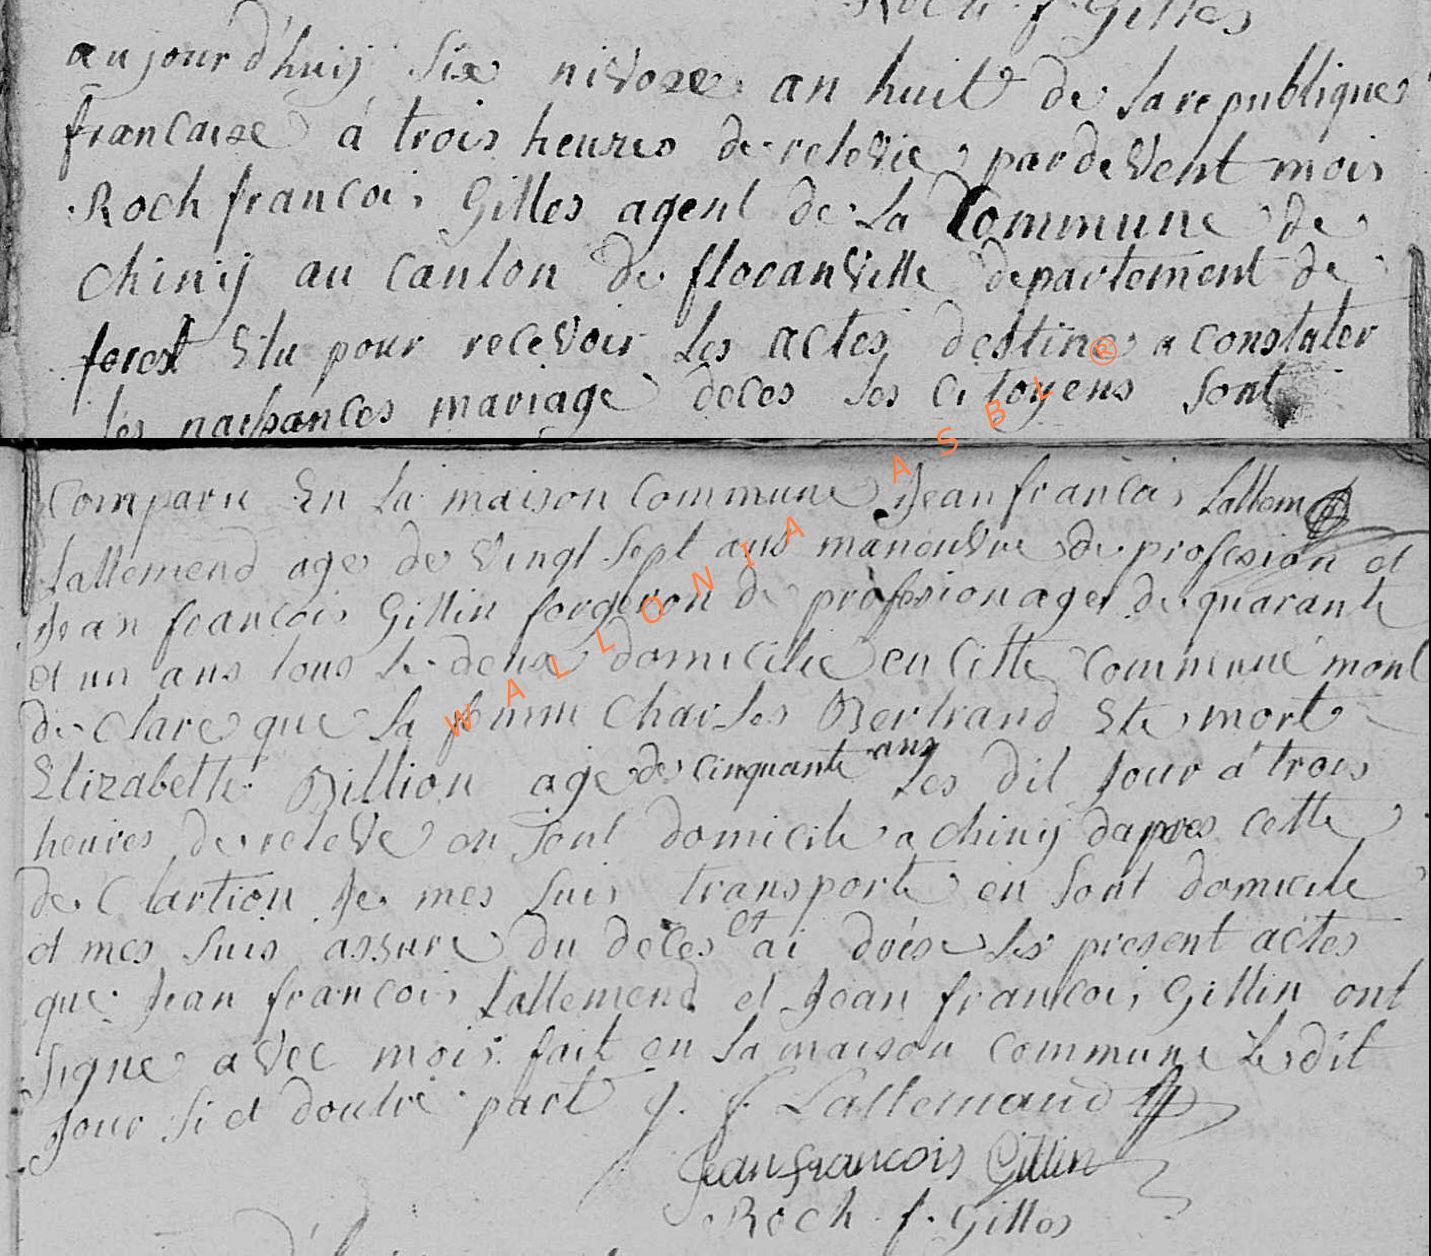 Roch. f. Gilles
aujourd'huij Six nivose an huit de la republiques
francaise a trois heures de relevie pardevent mois
Roch francois Gilles agent de la Commune de
chinij au canton de floranville departement de
forest Elu pour recevoir les actes destine a constater
les naissances mariage deces les citoyens sont
comparu En la maison commune Jean francois Lallem
Lallemend age de vingt sept ans manouvre de profesion et
Jean francois Gillin forgeron de profesion age de quarante
et un ans tous le deux domicilie en cette commune mont
de clare que la femme Charles Bertrand Ete mort
Elizabette Billion age de cinquante ans les dit Jour a trois
heures de releve en sont domicile a chinij dapres cette
de Clartion Je mes suis transporte en sont domicile
et mes suis assure du deces et ai drese les present actes
que Jean francois Lallemend et Jean francois Gillin ont
signe avec mois fait en la maison commune Le dit
Jour si et doutre part J. f Lallemand
Jean francois Gillin
Roch . f . Gilles
WALLONIA ASBL ®